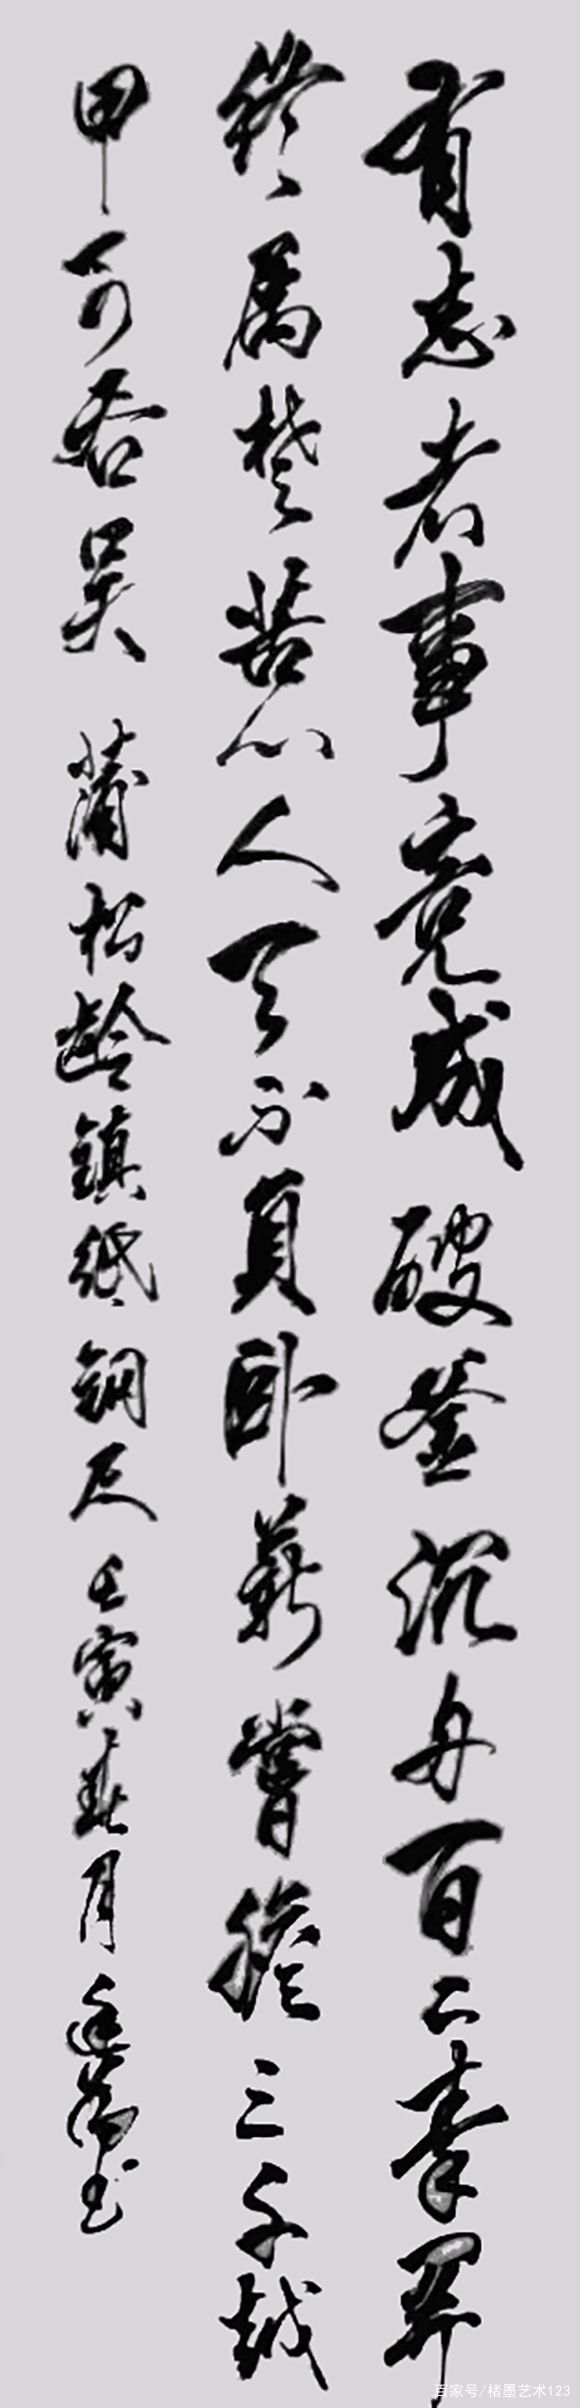 有志者事竟成破釜沉舟百二秦關
終属楚苦心人天不負卧薪嘗膽三千越
甲可吞吴 蒲松龄鎮紙銅尺 壬寅春月书
百家号/楮墨艺术123